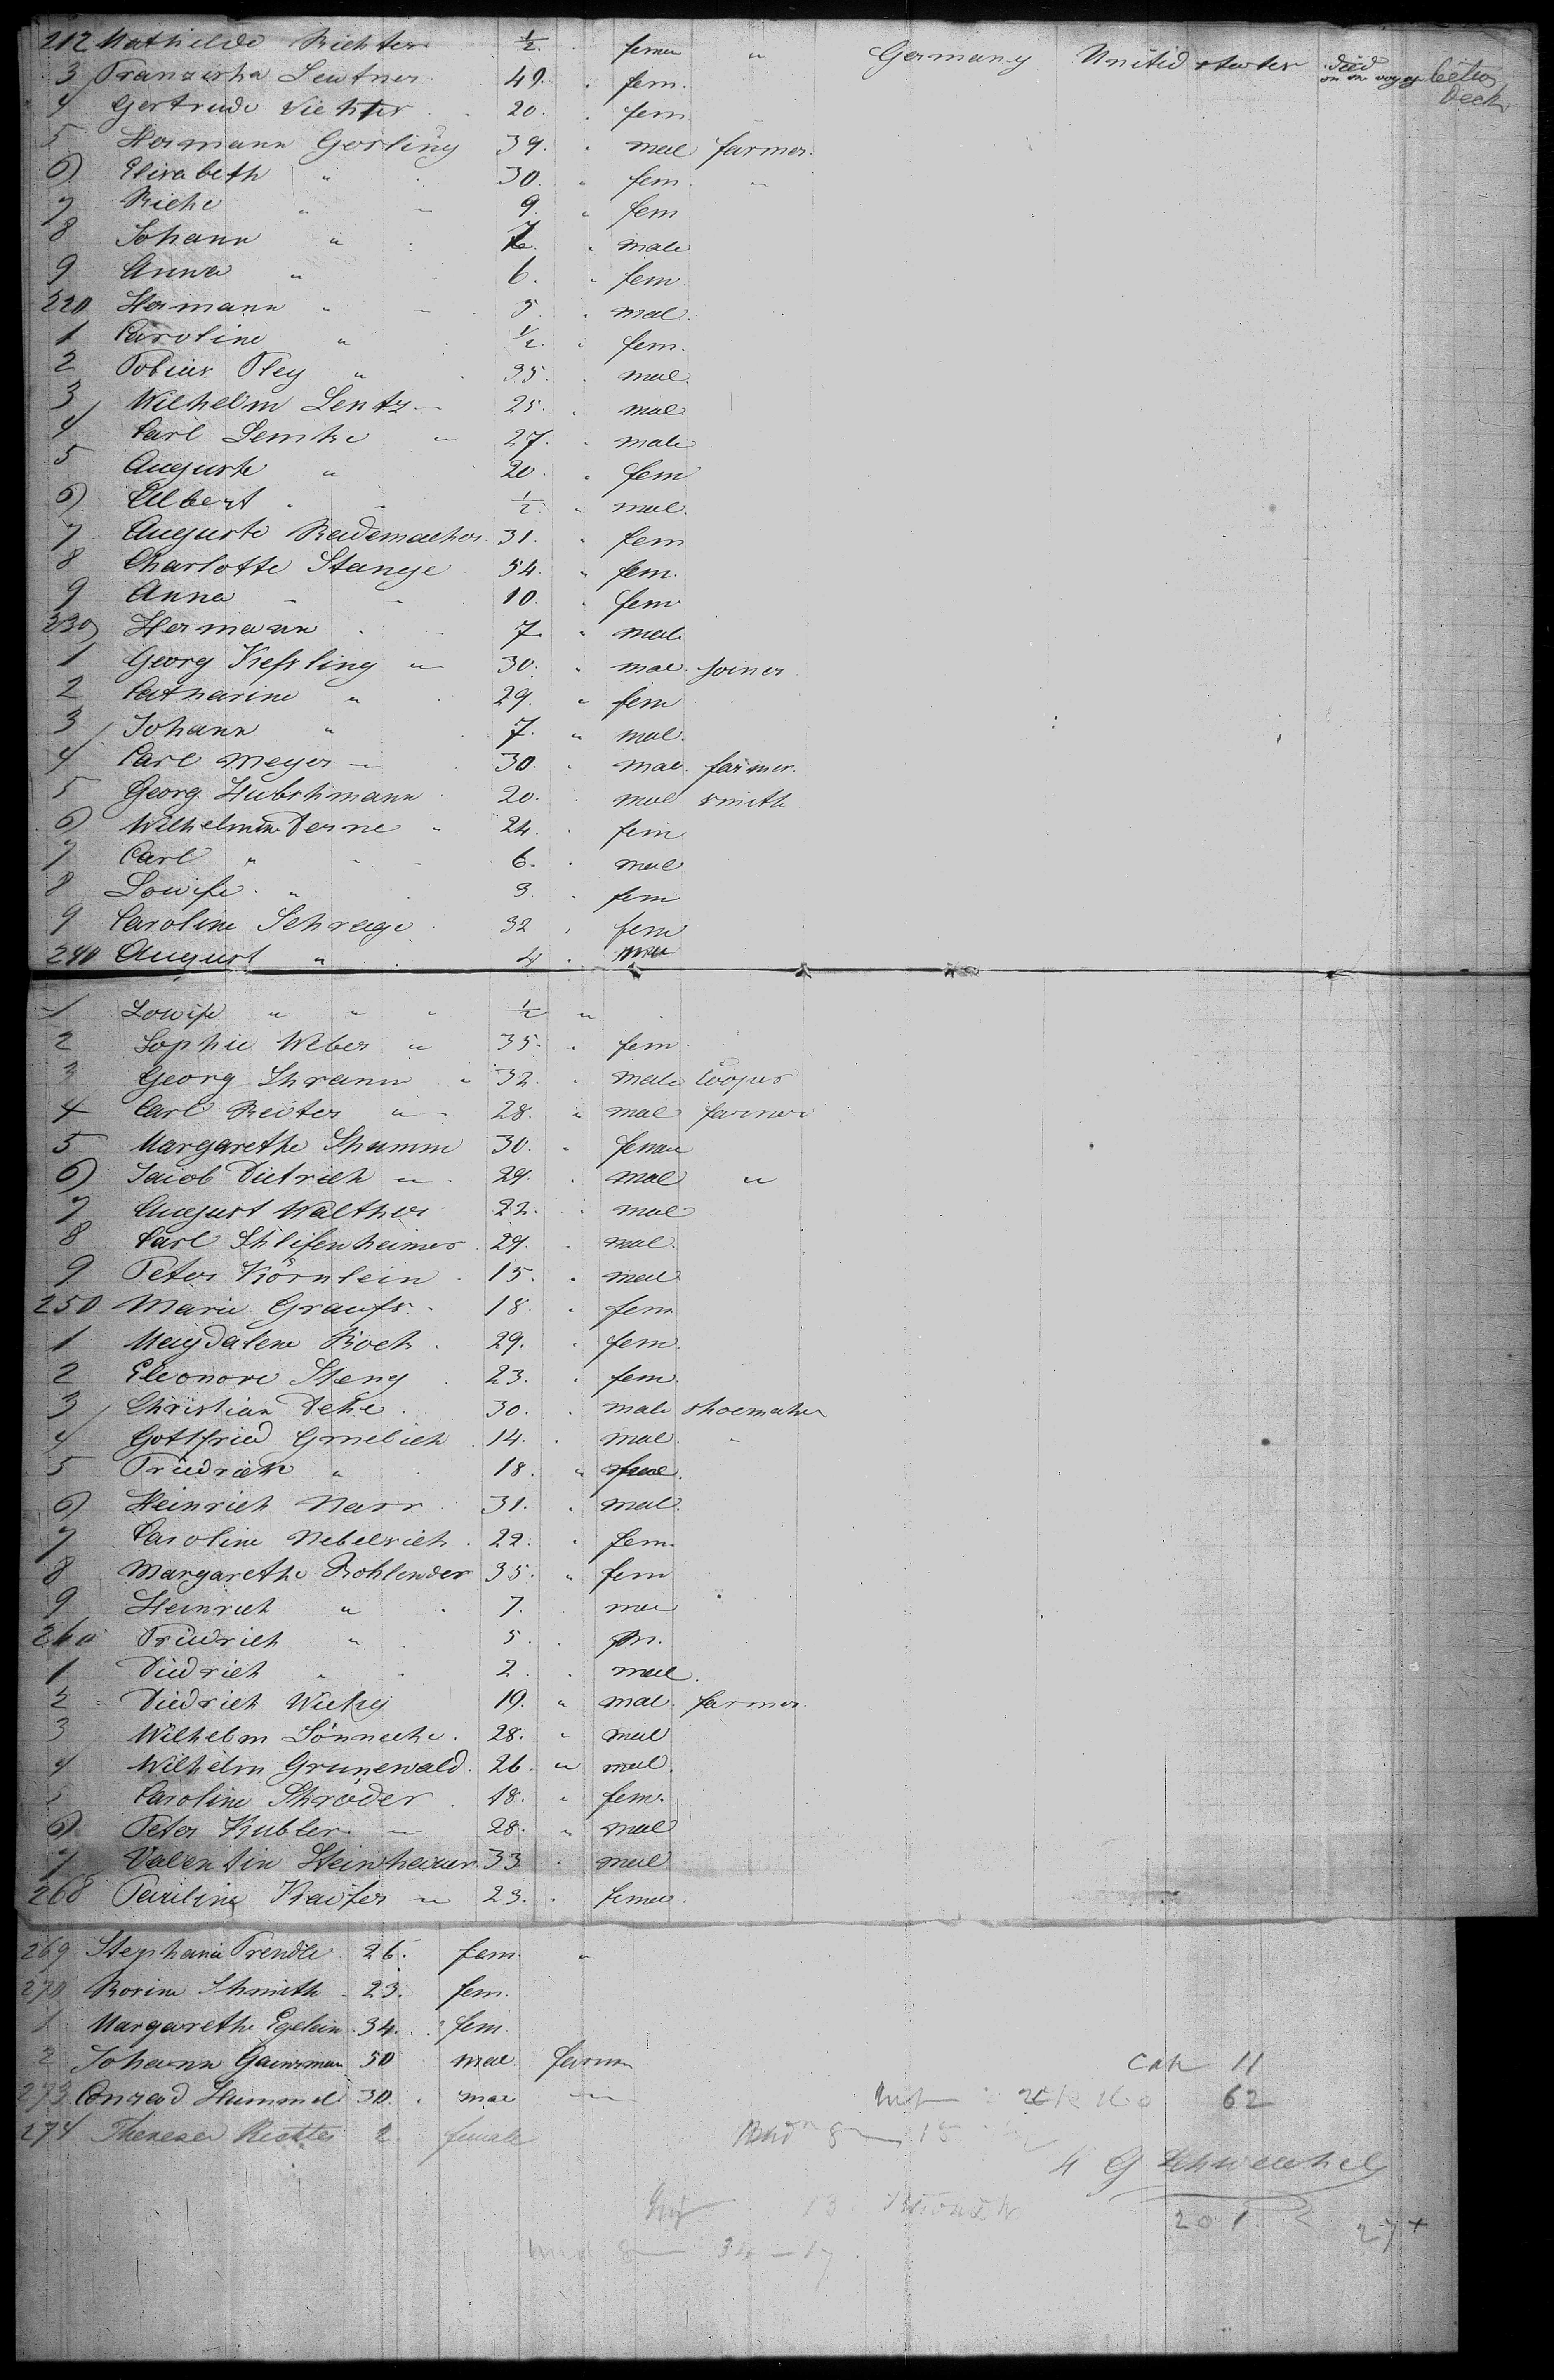 212 Mathilde Richter ½. femea " Germany United states died on on voyage betwe Deck
3 Franziska Leutner 49. " fem.
4 Gertrude Richter 20. " fem.
5 Hermann Gerling 39. " male farmer.
6 Elisabeth " 30. " fem. "
7 Rieke " 9. " fem
8 Johann " 7. " male
9 Anna " 6. " fem.
220 Hermann " 5. " mal.
1 Caroline " ½. " fem.
2 Tobias Fley " 35. " mal.
3 Wilhelm Lentz 25. " mal
4 Carl Lemke " 27. " male
5 Auguste " 20. " fem
6 Albert " ½. " mal.
7 Auguste Rademacher 31. " fem
8 Charlotte Stange 54. " fem.
9 Anna " 10. " fem
230 Hermann 7. " male
1 Georg Kefsling " 30. " mal. Joiner
2 Catharine " 29. " fem
3 Johann " 7. " mal.
4 Carl Meyer 30. " mal. farmer.
5 Georg Hubshmann 20. mal smith
6 Wilhelmine Derne " 24. " fem
7 Carl " 6. " mal
8 Lowise " 3. " fem
9 Caroline Schrage 32 " fem
240 August " 4 "
1 Lowise " ½ "
2 Sophie Weber " 35. " fem.
3 Georg Shramm " 32. " male Cooper
4 Carl Reiter " 28. " mal farmer
5 Margarethe Shumm 30. " femae
6 Jacob Dietrich " 29. " mal "
7 August Walther 22. " mal
8 Carl Shlifenheimer 29. " mal.
9 Peter Körnlein 15. " mal.
250 Marie Graufs 18. " fem
1 Magdalene Koch 29. " fem.
2 Eleonore Steng 23. " fem.
3 Christian Deke 30. " male shoemaker
4 Gottfried Gmelich 14. " mal. "
5 Friedrich " 18. "
6 Heinrich Narr 31. " mal.
7 Caroline Nebelrich 22. " fem.
8 Margarethe Bohlender 35. " fem
9 Heinrich " 7. mae
260 Friedrich " 5. " m.
1 Diedrich " 2. " mal.
2 Diedrich Wieky 19. " mal. farmer.
3 Wilhelm Sönnecke. 28. " mal
4 Wilhelm Grunewald. 26. " mal.
5 Caroline Shröder 18. " fem.
6 Peter Kubler 28. " mal
7 Valentin Steinhauer 33 " mal
268 Pauline Kaifer " 23. " femae.
269 Stephania Trendle 26. fem. "
270 Rosine Shmith 23. fem.
1 Margarethe Egelein 34. fem
2 Johann Gainsman 50 mal farm
273 Conrad Hummel 30. " mal "
274 Therese Richter 2. female
Cab 11
260 62
8 15
4 G Schwenke
13
201 27+
8 34 - 17